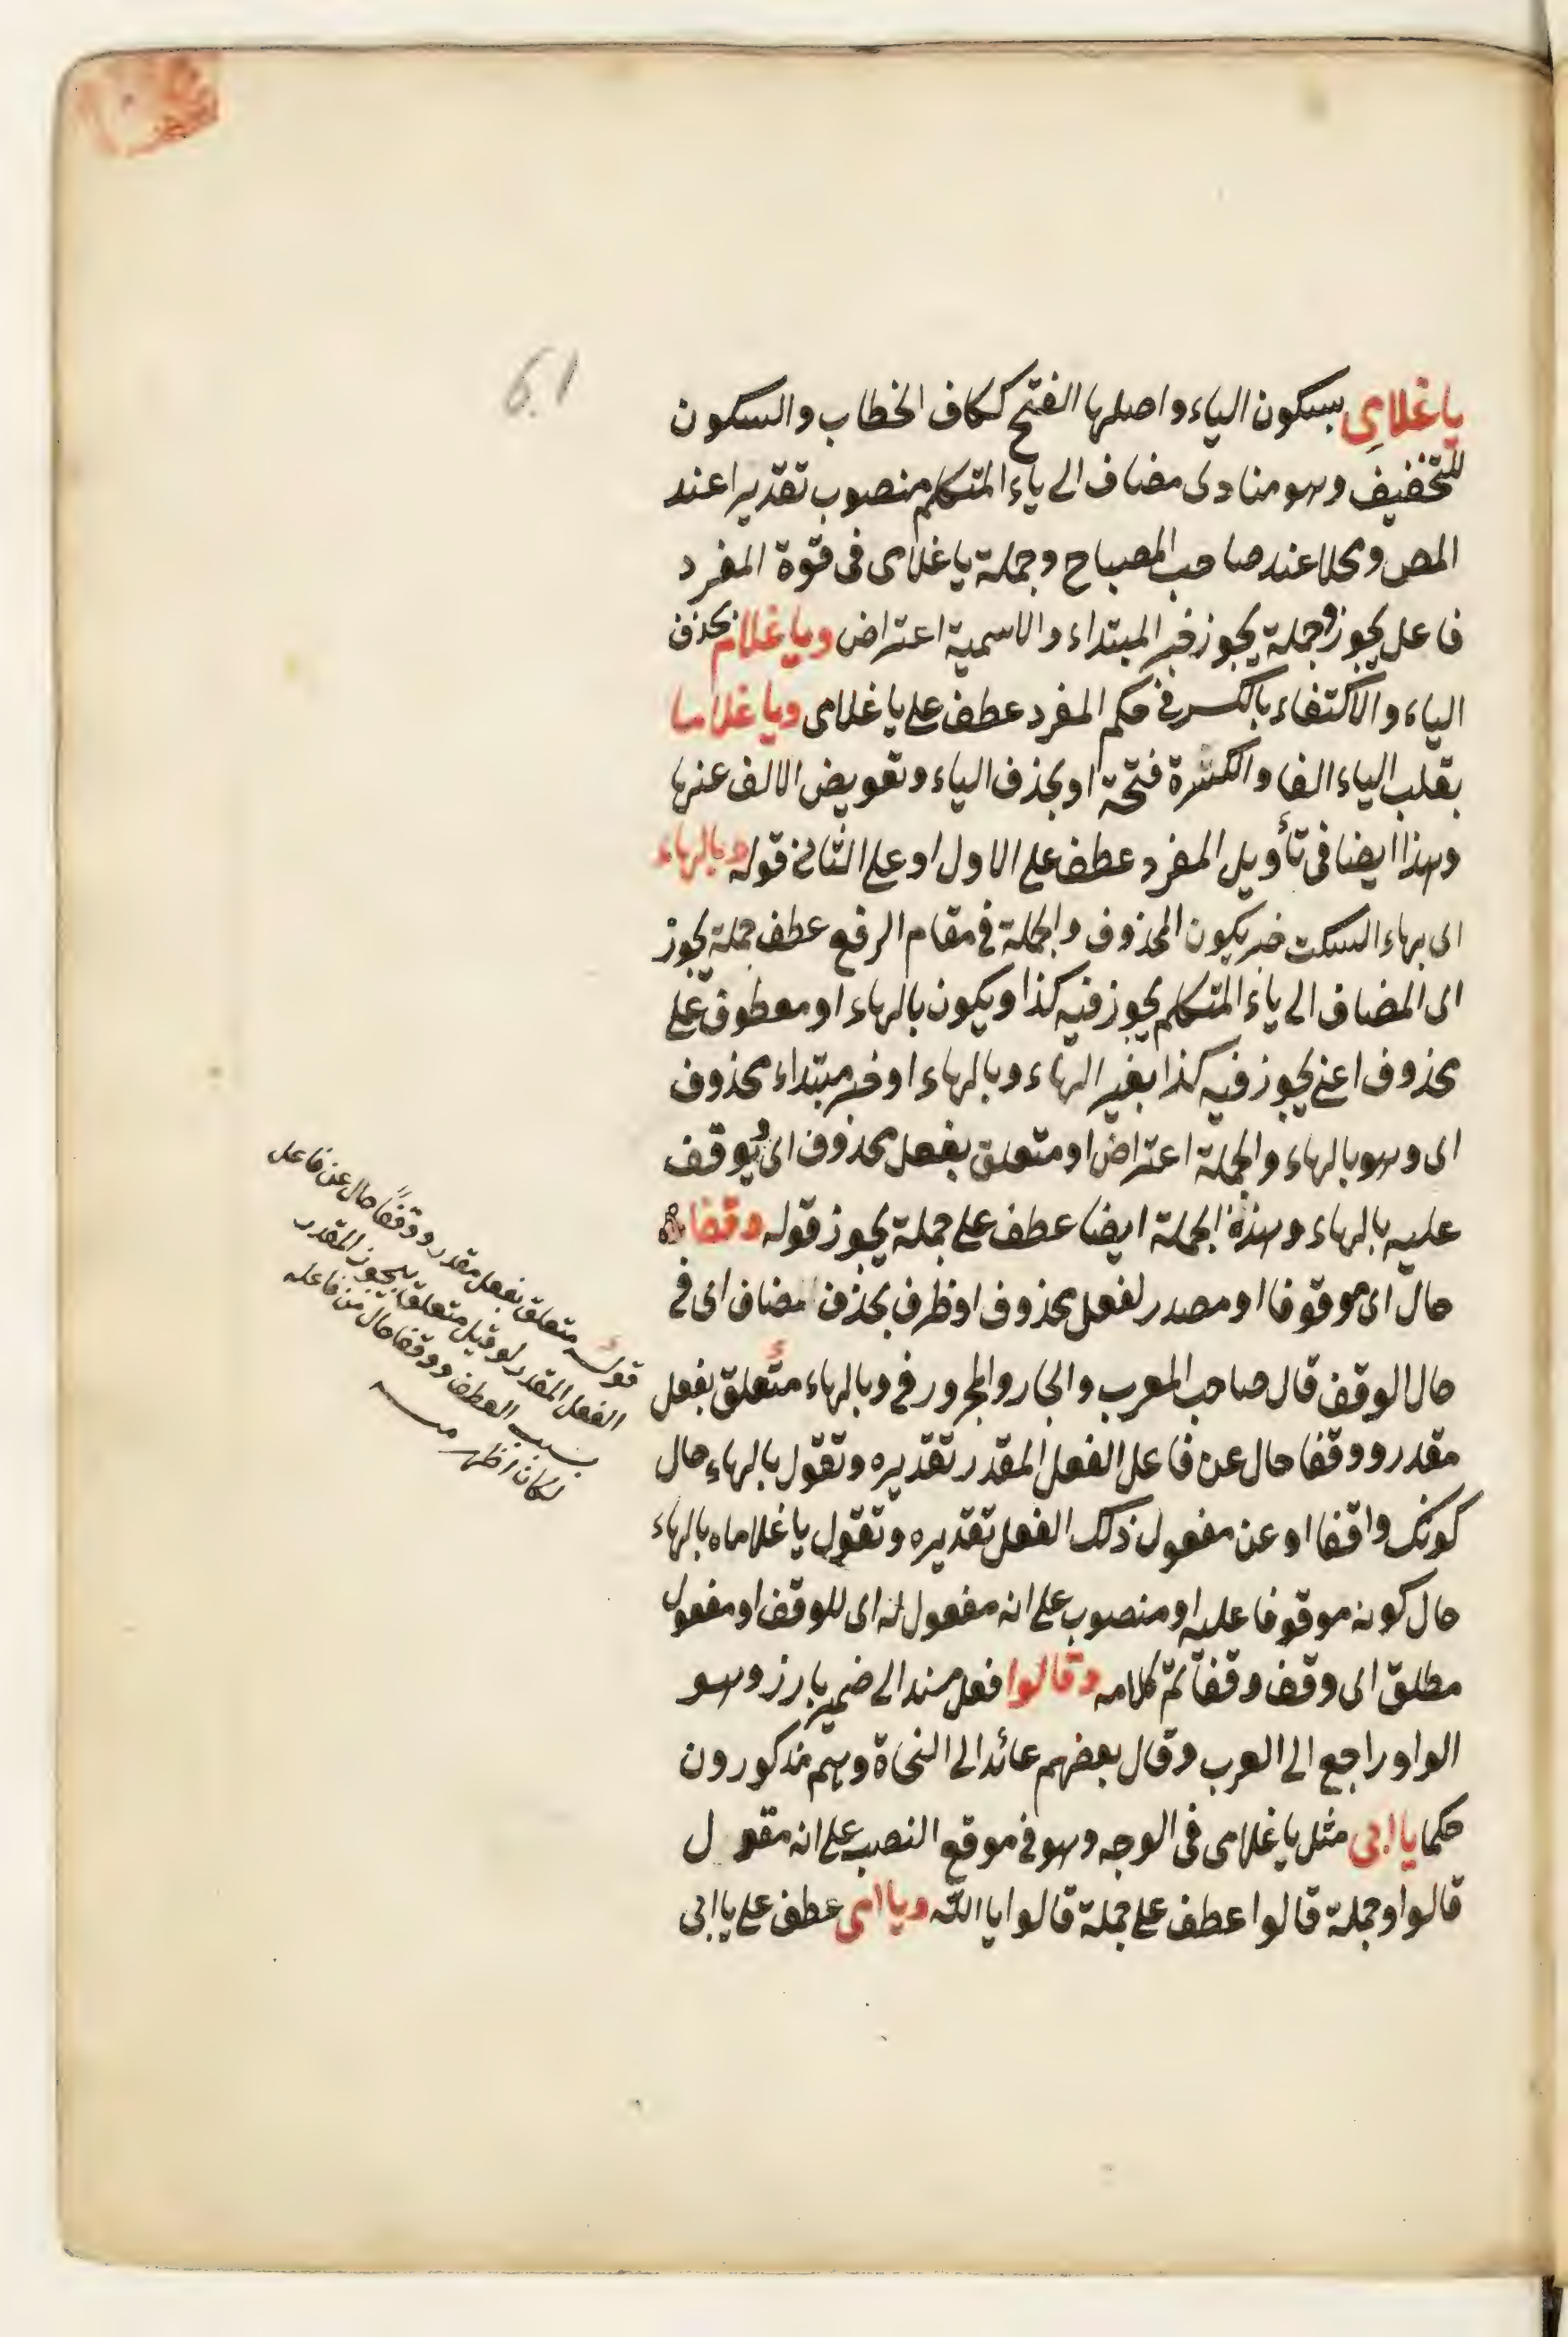 61
يا غلامى بسكون الياء واصلها الفتح ككاف الخطاب والسكون
للتخفيف وهو منادى مضاف الى ياء المتكلم منصوب تقديرا عند
المص ومحلا عند صاحب المصباح وجملة يا غلامى فى قوة المفرد
فاعل يجوز وجملة يجوز خبر المبتداء والاسمية اعتراض ويا غلام بحذف
الياء والاكتفاء بالكسر فى حكم المفرد عطف على يا غلامى ويا غلاما
بقلب الياء الفا والكسرة فتحة او بحذف الياء وتعويض الالف عنها
وهذا ايضا فى تأويل المفرد عطف على الاول او على الثانى قوله وبالهاء
اى بهاء السكت خبر يكون المحذوف والجملة فى مقام الرفع عطف جملة يجوز
اى المضاف الى ياء المتكلم يجوز فيه كذا ويكون بالهاء او معطوف على
محذوف اعنى يجوز فيه كذا بغير الهاء وبالهاء او خبر مبتداء محذوف
اى وهو بالهاء والجملة اعتراض او متعلق بفعل محذوف اى يُوقف
عليه بالهاء وهذه الجملة ايضا عطف على جملة يجوز قوله وقفا
حال اى موقوفا او مصدر لفعل محذوف او ظرف بحذف مضاف اى فى
حال الوقف قال صاحب المعرب والجار والمجرور فى وبالهاء متعلق بفعل
مقدر ووقفا حال عن فاعل الفعل المقدر تقديره وتقول بالهاء حال
كونك واقفا او عن مفعول ذلك الفعل تقديره وتقول يا غلاماه بالهاء
حال كونه موقوفا عليه او منصوب على انه مفعول له اى للوقف او مفعول
مطلق اى وقف وقفا تم كلامه وقالوا فعل مسند الى ضمير بارز وهو
الواو راجع الى العرب وقال بعضهم عائد الى النحاة وهم مذكورون
حكما يا ابى مثل يا غلامى فى الوجه وهو فى موقع النصب على انه مقول
قالوا وجملة قالوا عطف على جملة قالوا يا الله ويا امى عطف على يا ابى
قوله متعلق بفعل مقدر ووقفاً حال عن فاعل
الفعل المقدر لو قيل متعلق بيجوز المقدر
بسبب العطف ووقفا حال من فاعله
لكان اظهر منه